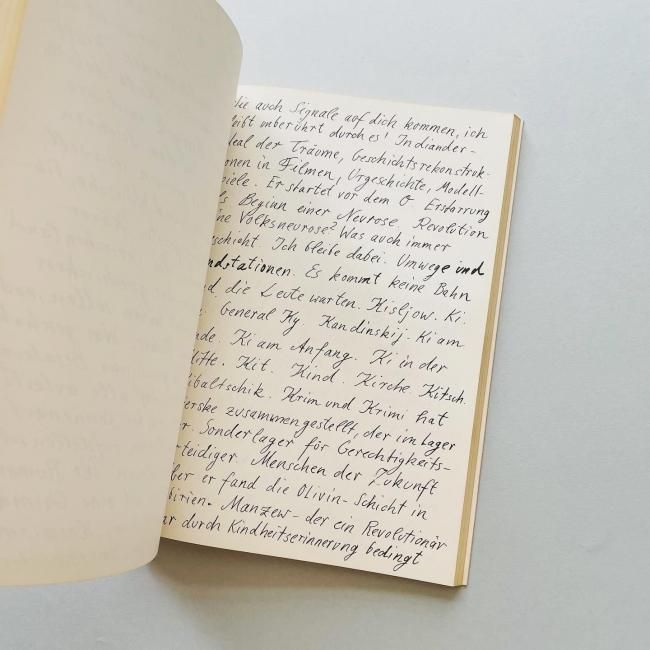 die auch Signale auf dich kommen, ich
leibt unberührt durch es! Indianer-
deal der Träume, Geschichtsrekonstruk-
onen in Filmen, Urgeschichte, Modell-
piele. Er startet vor dem O Erstarrung
ls Beginn einer Neurose. Revolution
ine Volksneurose? Was auch immer
schieht. Ich bleibe dabei. Umwege und
ndstationen. Es kommt keine Bahn
nd die Leute warten. Kisljow. Ki.
. General Ky. Kandinskij. Ki am
nde. Ki am Anfang. Ki in der
litte. Kit. Kind. Kirche. Kitsch.
ibaltschik. Krim und Krimi hat
erske zusammengestellt, der im Lager
r. Sonderlager für Gerechtigkeits-
rteidiger Menschen der Zukunft
ber er fand die Olivin-Schicht in
birien. Manzew - der ein Revolutionär
ar durch Kindheitserinnerung bedingt